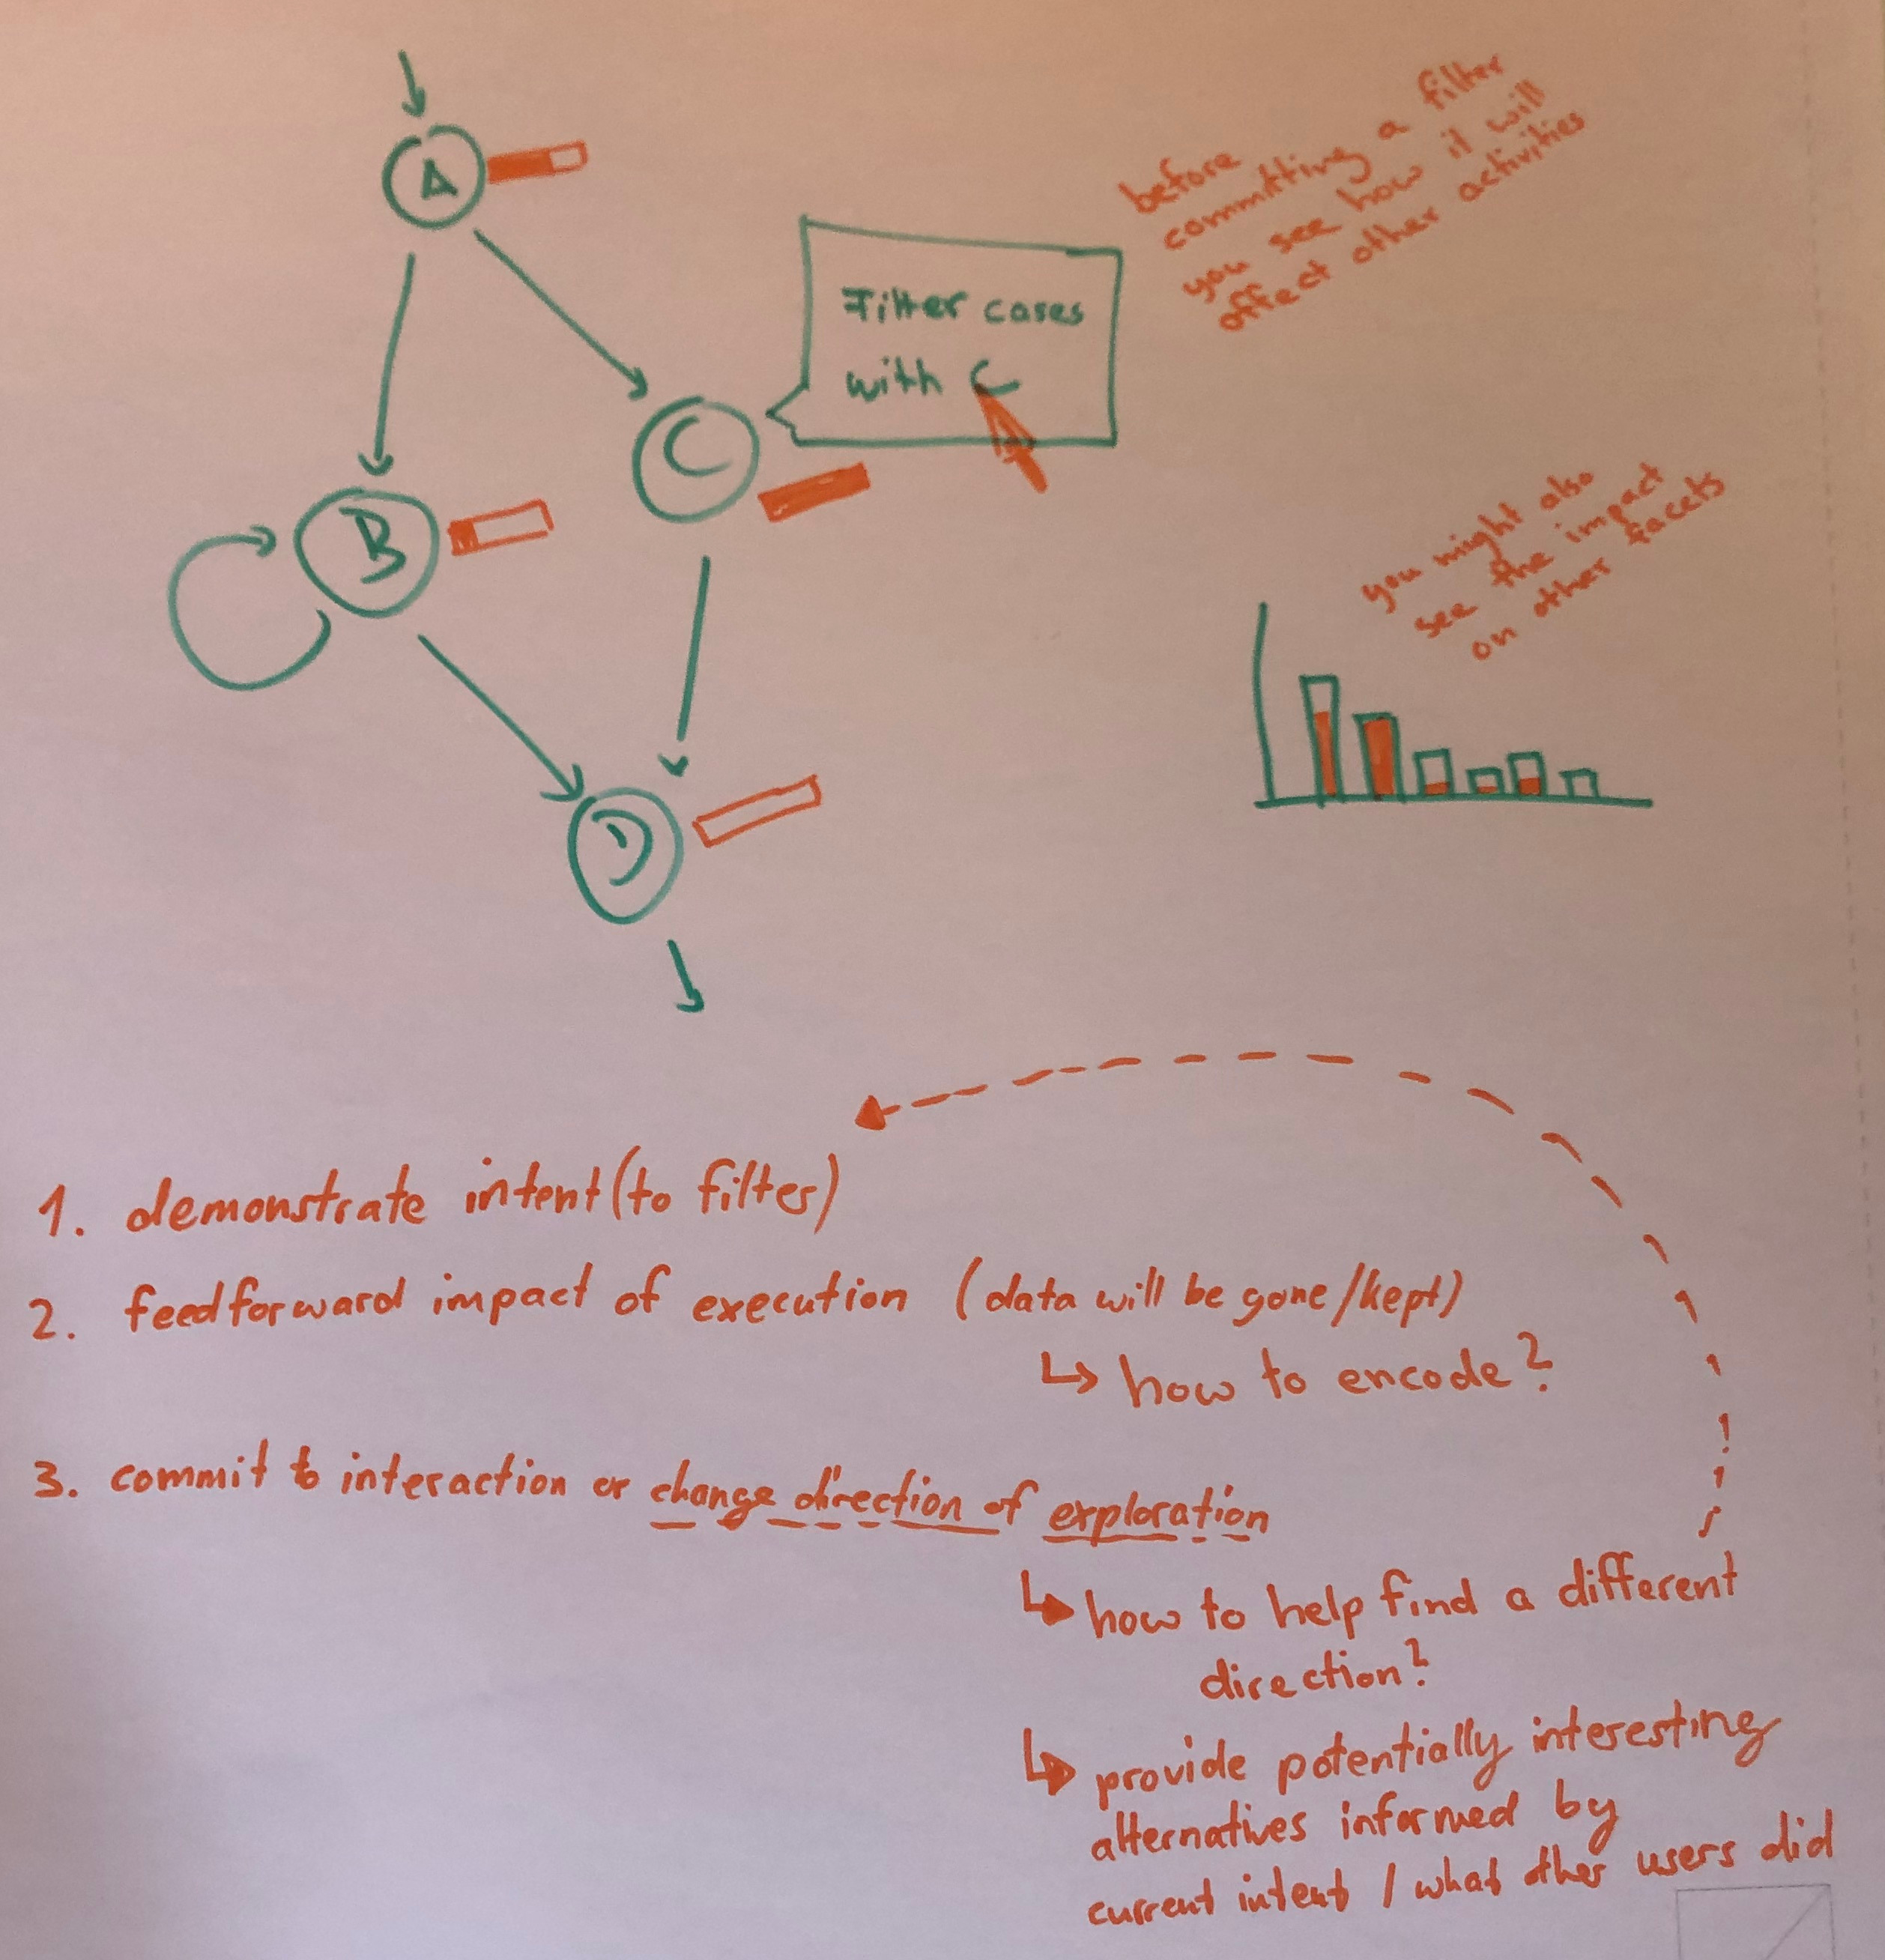 A
before
committing a filter
you see how it will
affect other activities
Filter cases
with C
C
B
you might also
see the impact
on other facets
D
1. demonstrate intent (to filter)
2. feedforward impact of execution (data will be gone/kept)
↳ how to encode?
3. commit to interaction or change direction of exploration
↳ how to help find a different
direction?
↳ provide potentially interesting
alternatives informed by
current intent / what other users did